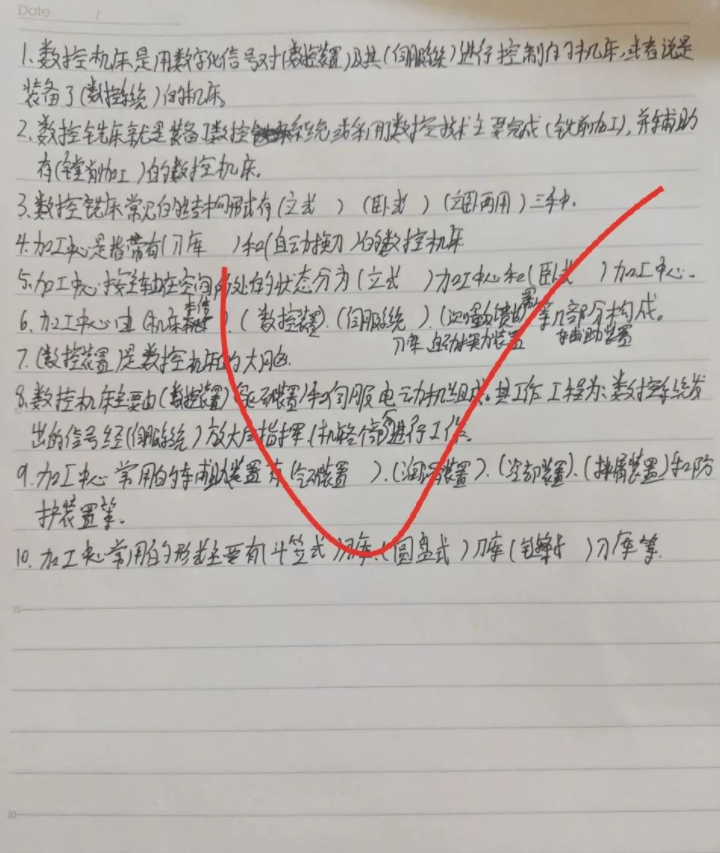 Date /
1. 数控机床是用数字化信号对(数控装置)及其(伺服系统)进行控制的机床,或者说是
装备了(数控系统)的机床。
2. 数控铣床就是装备了数控系统或采用数控技术主要完成(铣削加工),并辅助
有(镗削加工)的数控机床。
3. 数控铣床常见的结构形式有(立式 )(卧式 )(立卧两用)三种.
4. 加工中心是指带有(刀库 )和(自动换刀)的数控机床
5. 加工中心按主轴在空间所处的状态分为(立式 )加工中心和(卧式 )加工中心.
6. 加工中心由(机床本体).(数控装置).(伺服系统).( )等几部分构成。
刀库 辅助装置
7. (数控装置)是数控机床的大脑.
8. 数控机床主要由(数控装置)( 装置)和伺服电动机组成。其工作工程为:数控系统发
出的信号经(伺服系统)放大后指挥( )进行工作。
9. 加工中心常用的辅助装置有( 装置 ).(润滑装置).(冷却装置).(排屑装置)和防
护装置等。
10. 加工中心常用的形式主要有(斗笠式)刀库.(圆盘式)刀库( )刀库等.
15
20